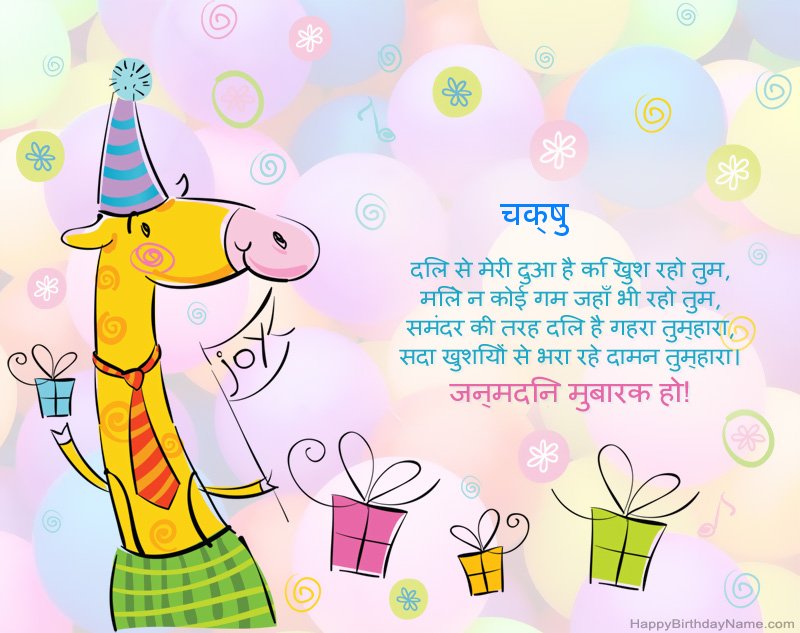 चक्षु
दिल से मेरी दुआ है कि खुश रहो तुम,
मिले न कोई गम जहाँ भी रहो तुम,
समंदर की तरह दिल है गहरा तुम्हारा,
सदा खुशियों से भरा रहे दामन तुम्हारा।
जन्मदिन मुबारक हो!
joy
HappyBirthdayName.com